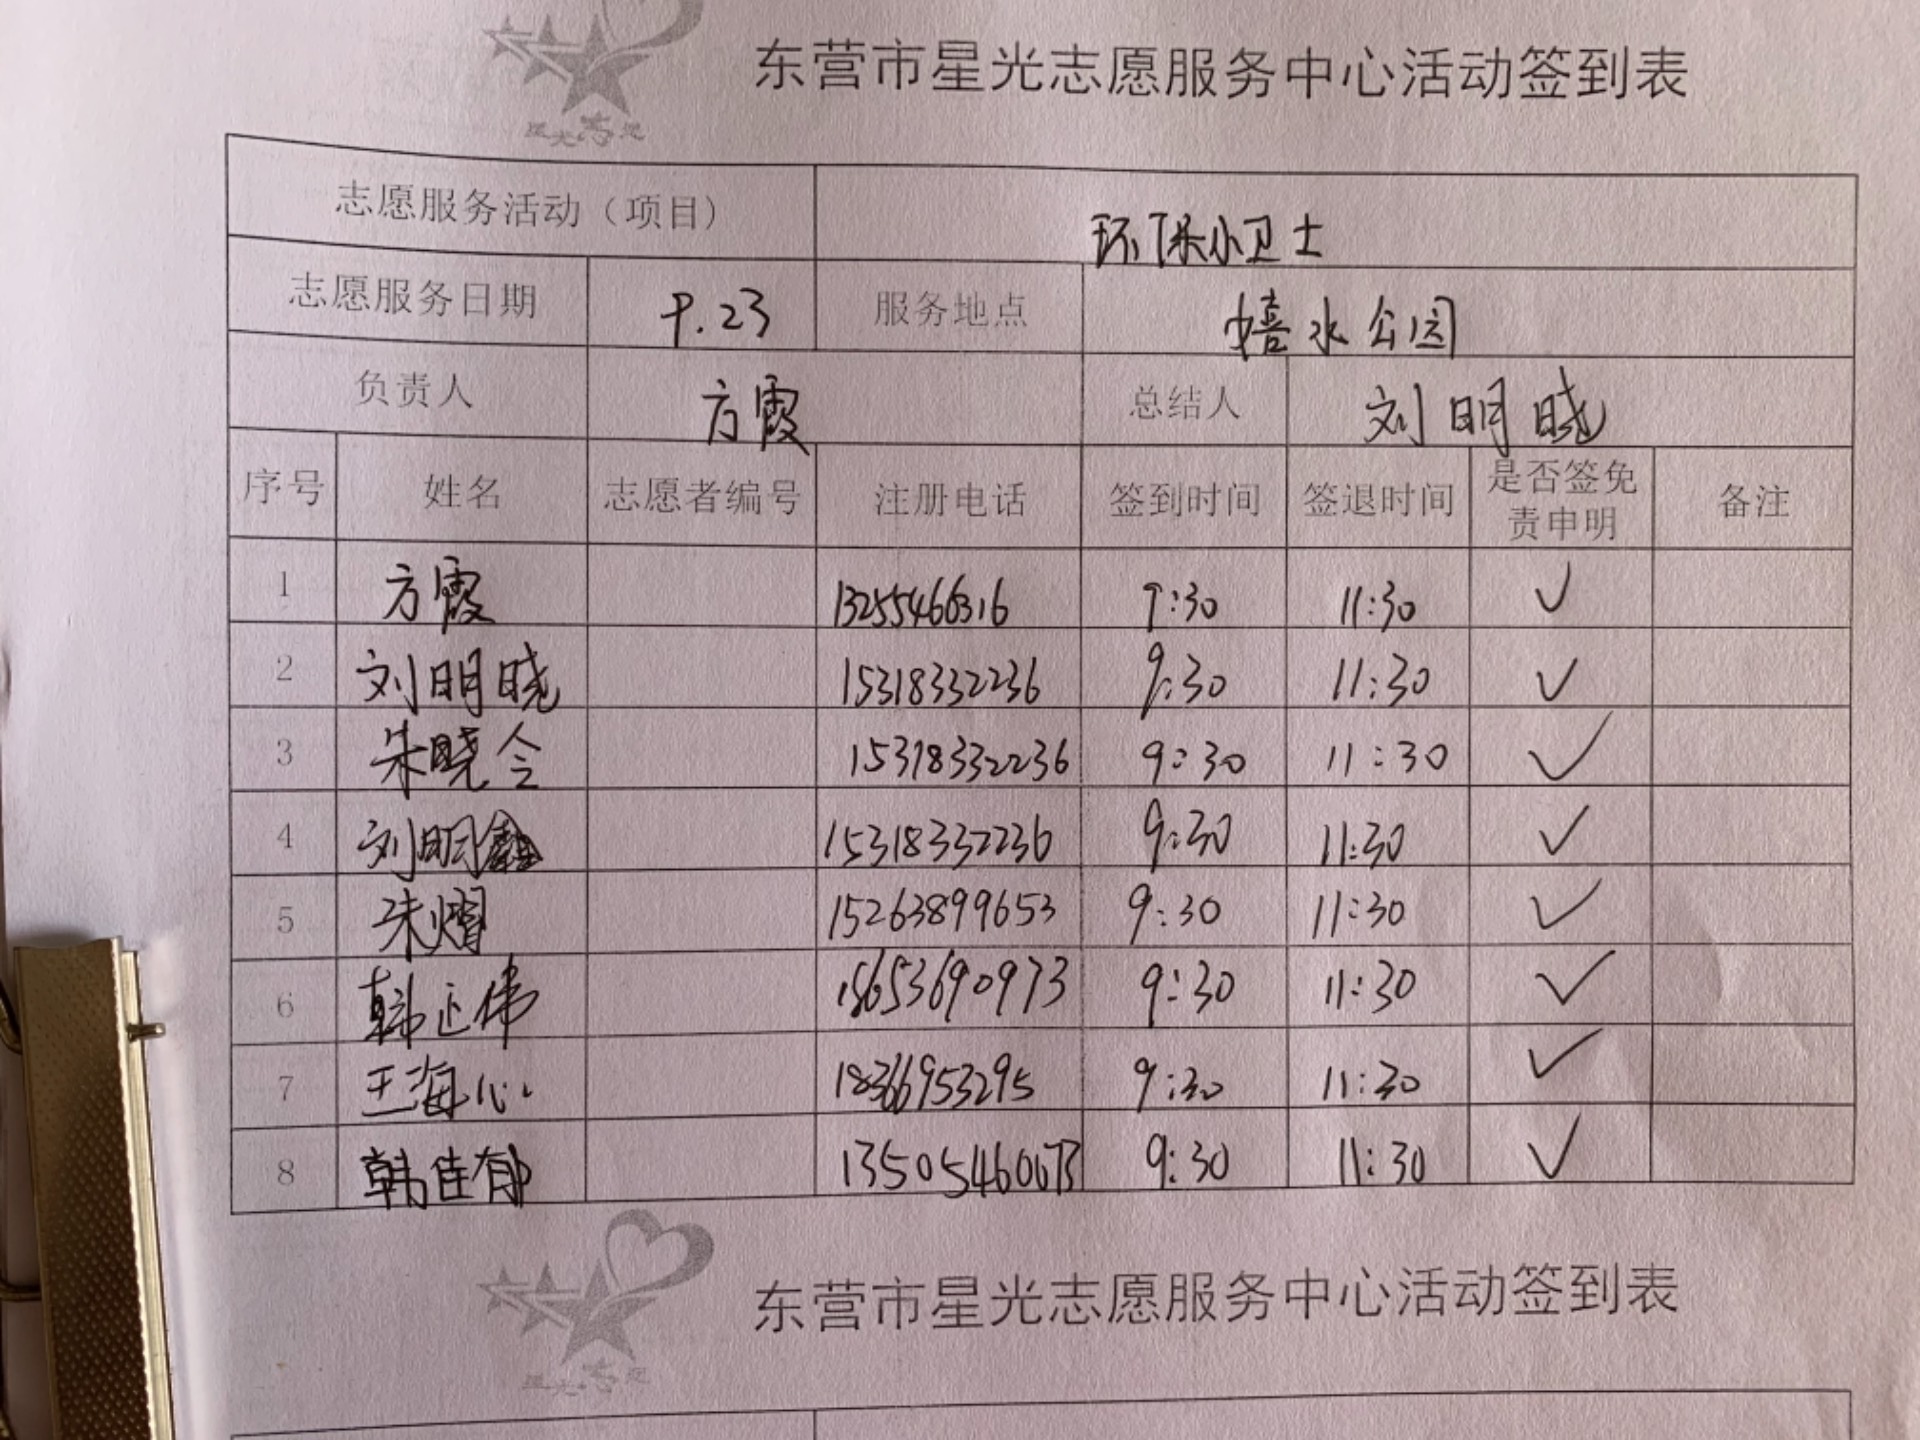 东营市星光志愿服务中心活动签到表
星光志愿
志愿服务活动（项目） 环保小卫士
志愿服务日期 9.23 服务地点 嬉水公园
负责人 方霞 总结人 刘明晓
序号 姓名 志愿者编号 注册电话 签到时间 签退时间 是否签免责申明 备注
1 方霞 13255466316 9:30 11:30 ✓
2 刘明晓 15318332236 9:30 11:30 ✓
3 朱晓令 15318332236 9:30 11:30 ✓
4 刘明鑫 15318332236 9:30 11:30 ✓
5 朱熠 15263899653 9:30 11:30 ✓
6 韩正伟 15653690973 9:30 11:30 ✓
7 王海心 18366953295 9:30 11:30 ✓
8 韩佳郁 13505460073 9:30 11:30 ✓
东营市星光志愿服务中心活动签到表
星光志愿